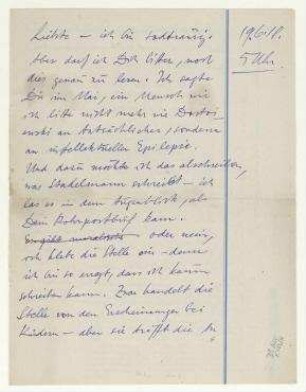 Liebste – ich bin todtraurig.
Aber darf ich Dich bitten, noch
dies genau zu lesen. Ich sagte
Dir im Mai, ein Mensch wie
ich litte nicht mehr wie Dosto-
ewski an tatsächlicher, sondern
an intellektueller Epilepsie.
Und dazu möchte ich das abschreiben,
was Stadelmann schreibt – ich
las es in dem Augenblick, als
Dein Rohrpostbrief kam.
oder nein,
ich klebe die Stelle ein – denn
ich bin so erregt, dass ich kaum
schreiben kann. Zwar handelt die
Stelle von den Erscheinungen bei
Kindern – aber sie trifft die
5 Uhr.